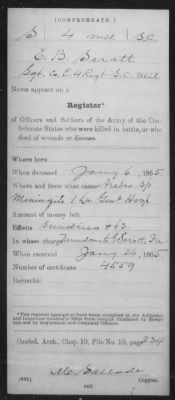 (CONFEDERATE.)
S 4 Mil S.C.
E. B. Seratt
Sgt. Co. E. 4 Regt S.C. Mil
Name appears on a
Register*
of Officers and Soldiers of the Army of the Con-
federate States who were killed in battle, or who
died of wounds or disease.
Where born
When deceased Jany 6, 1865
Where and from what cause Cerebro Sp
Meningitis 1 La. Genl Hosp
Amount of money left
Effects Sundries # 63.
In whose charge
When received Jany 26, 1865
Number of certificate 4559
Remarks:
*This register appears to have been compiled in the Adjutant
and Inspector General's Office from reports furnished by Surgeons
and by Regimental and Company Officers.
Confed. Arch., Chap. 10, File No. 10, page 234
(635)
Copyist.